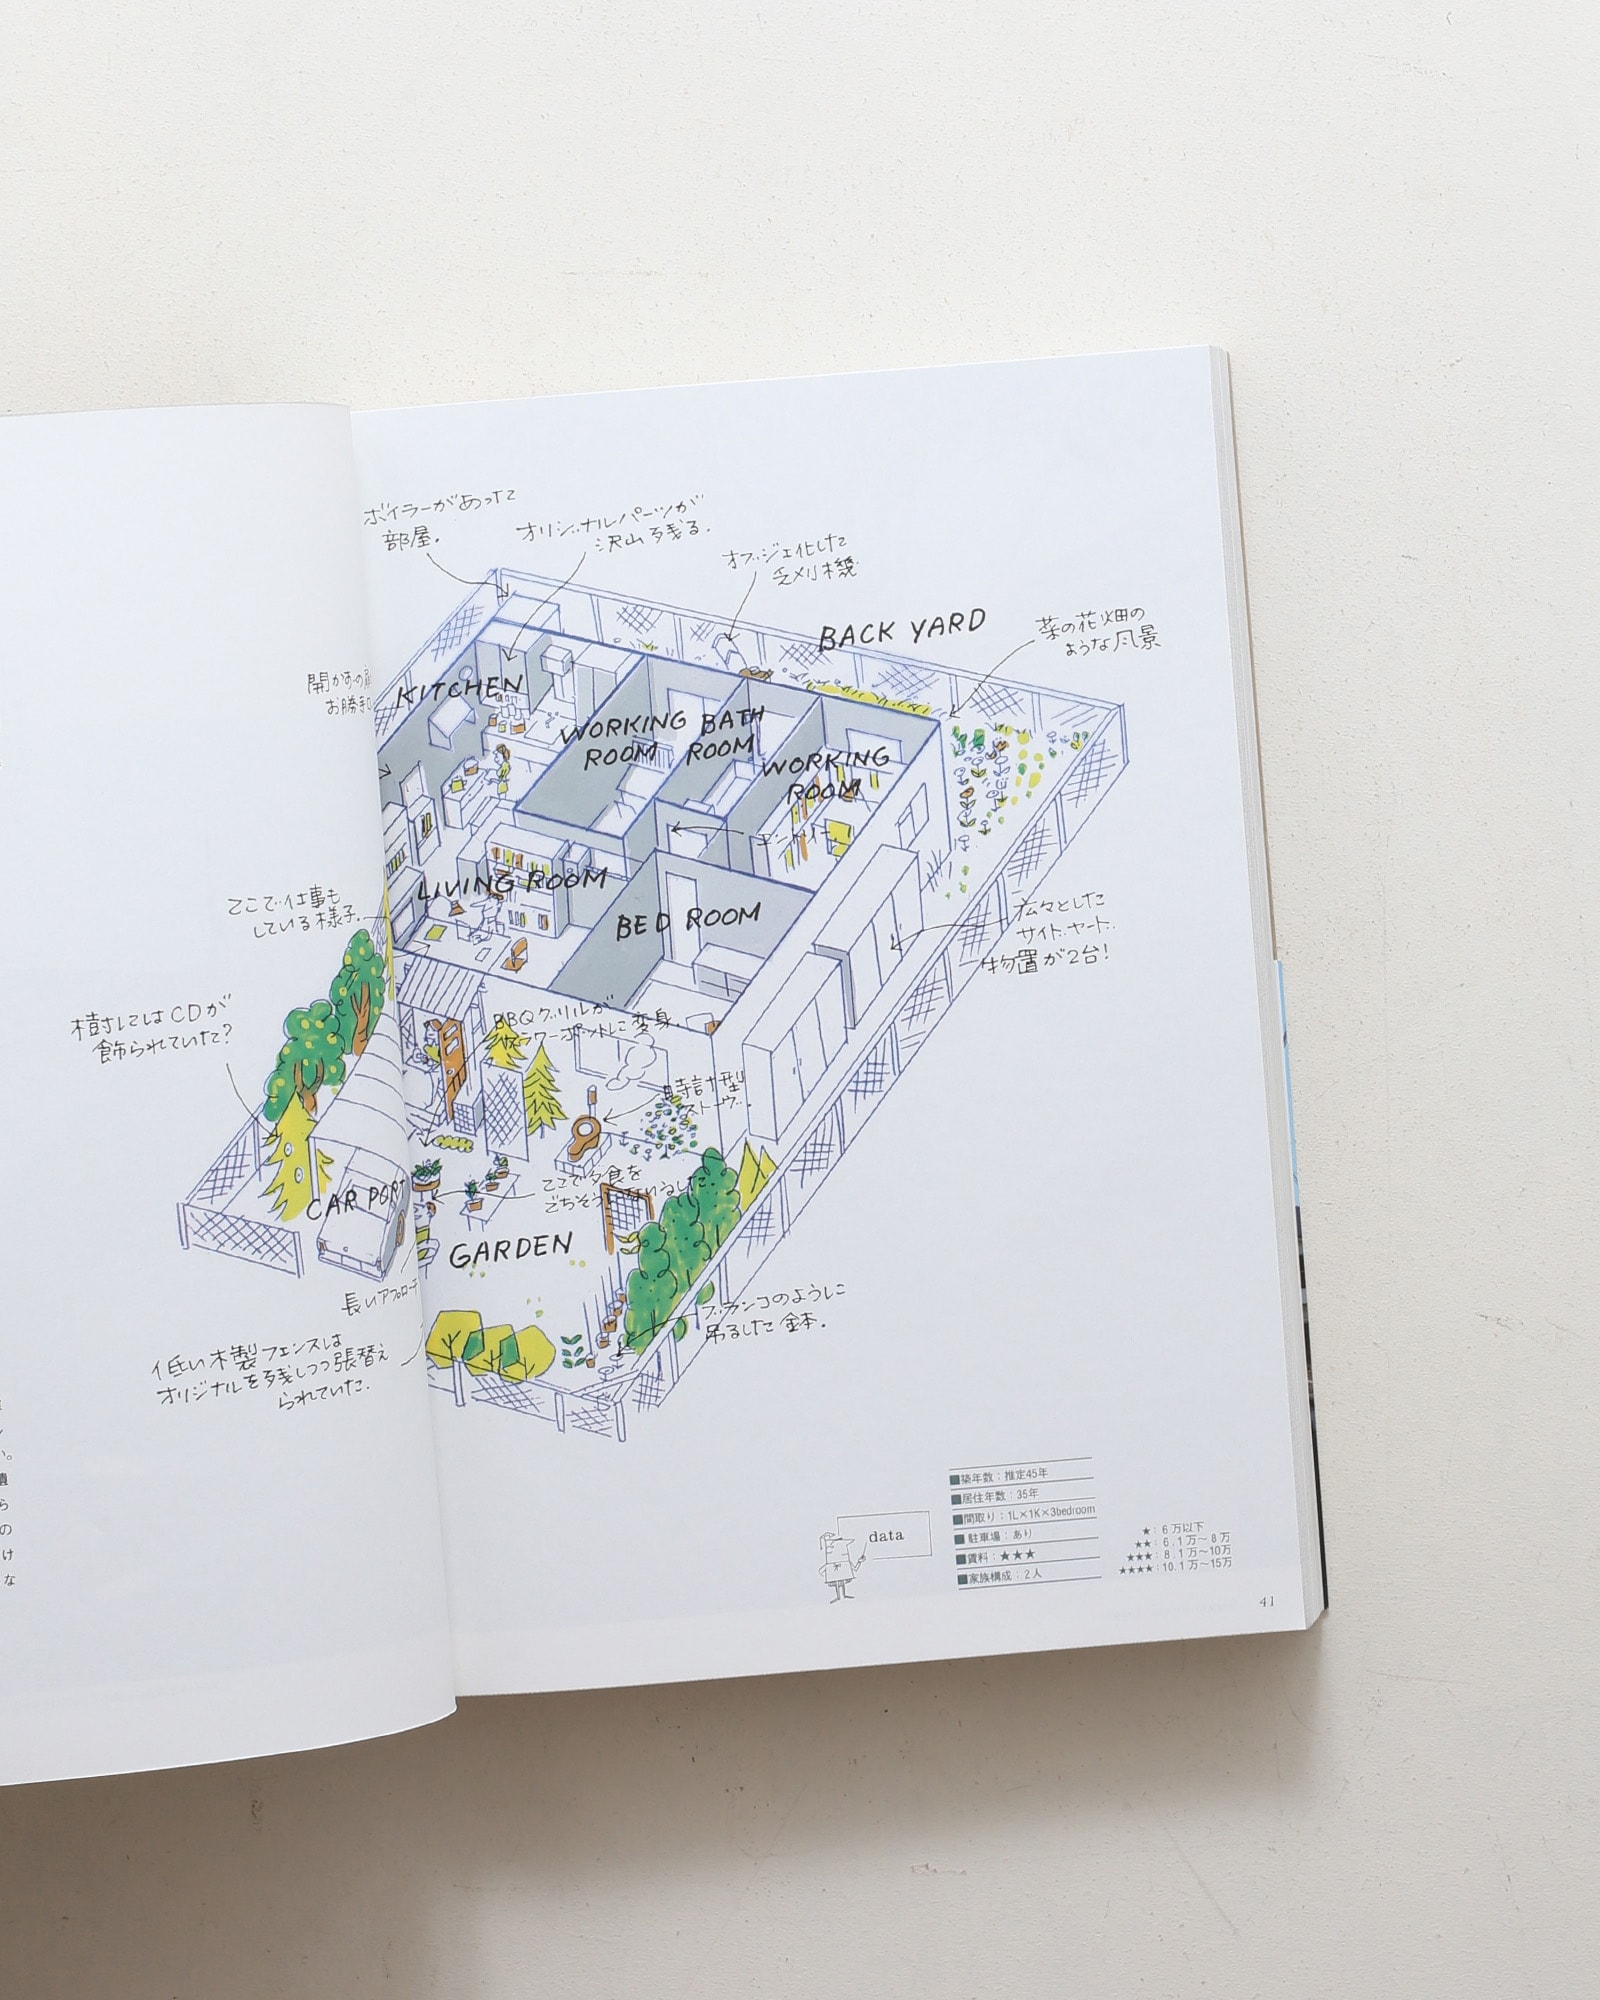 ボイラーがあった
部屋.
オリジナルパーツが
沢山残る.
オブジェ化した
芝刈り機
BACK YARD
菜の花畑の
ような風景
開かずの
お勝手口
KITCHEN
WORKING
ROOM
BATH
ROOM
WORKING
ROOM
LIVING ROOM
BED ROOM
ここで仕事も
している様子.
広々とした
サイドヤード.
物置が2台!
樹にはCDが
飾られていた?
BBQグリルが
フラワーポットに変身.
時計型
ストーヴ.
CAR PORT
ここで夕食を
GARDEN
長いアプローチ
低い木製フェンスは
オリジナルを残しつつ張替え
られていた.
ブランコのように
吊るした鉢.
data
■築年数:推定45年
■居住年数:35年
■間取り:1L×1K×3bedroom
■駐車場:あり
■賃料:★★★
■家族構成:2人
★:6万以下
★★:6.1万〜8万
★★★:8.1万〜10万
★★★★:10.1万〜15万
41